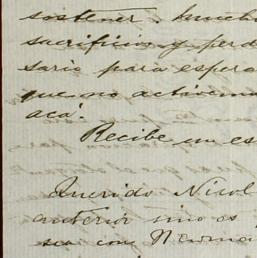 sostener mucho
sacrificios y perd
sario para espera
que no active
acá.
Recibe un es
Querido Nicol
anterior sino es
sea con